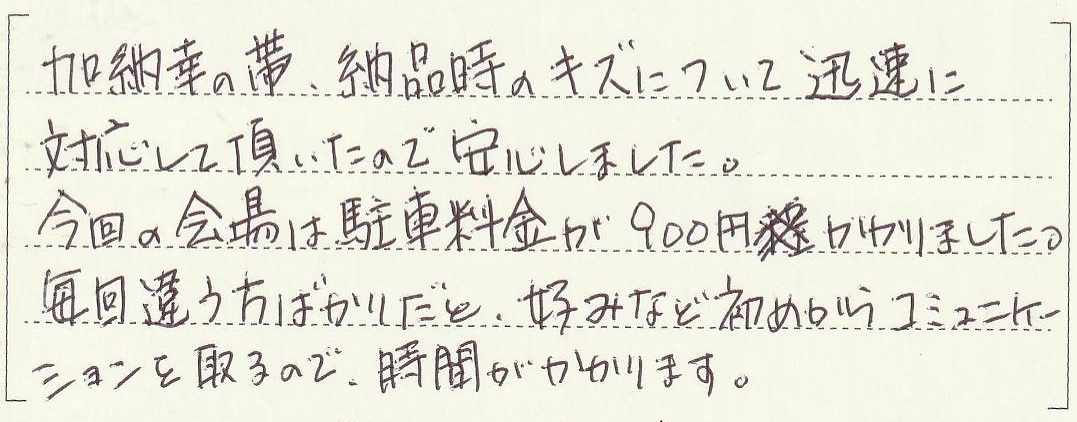 加納幸の帯、納品時のキズについて迅速に
対応して頂いたので安心しました。
今回の会場は駐車料金が900円程かかりました。
毎回違う方ばかりだと、好みなど初めからコミュニケー
ションを取るので、時間がかかります。